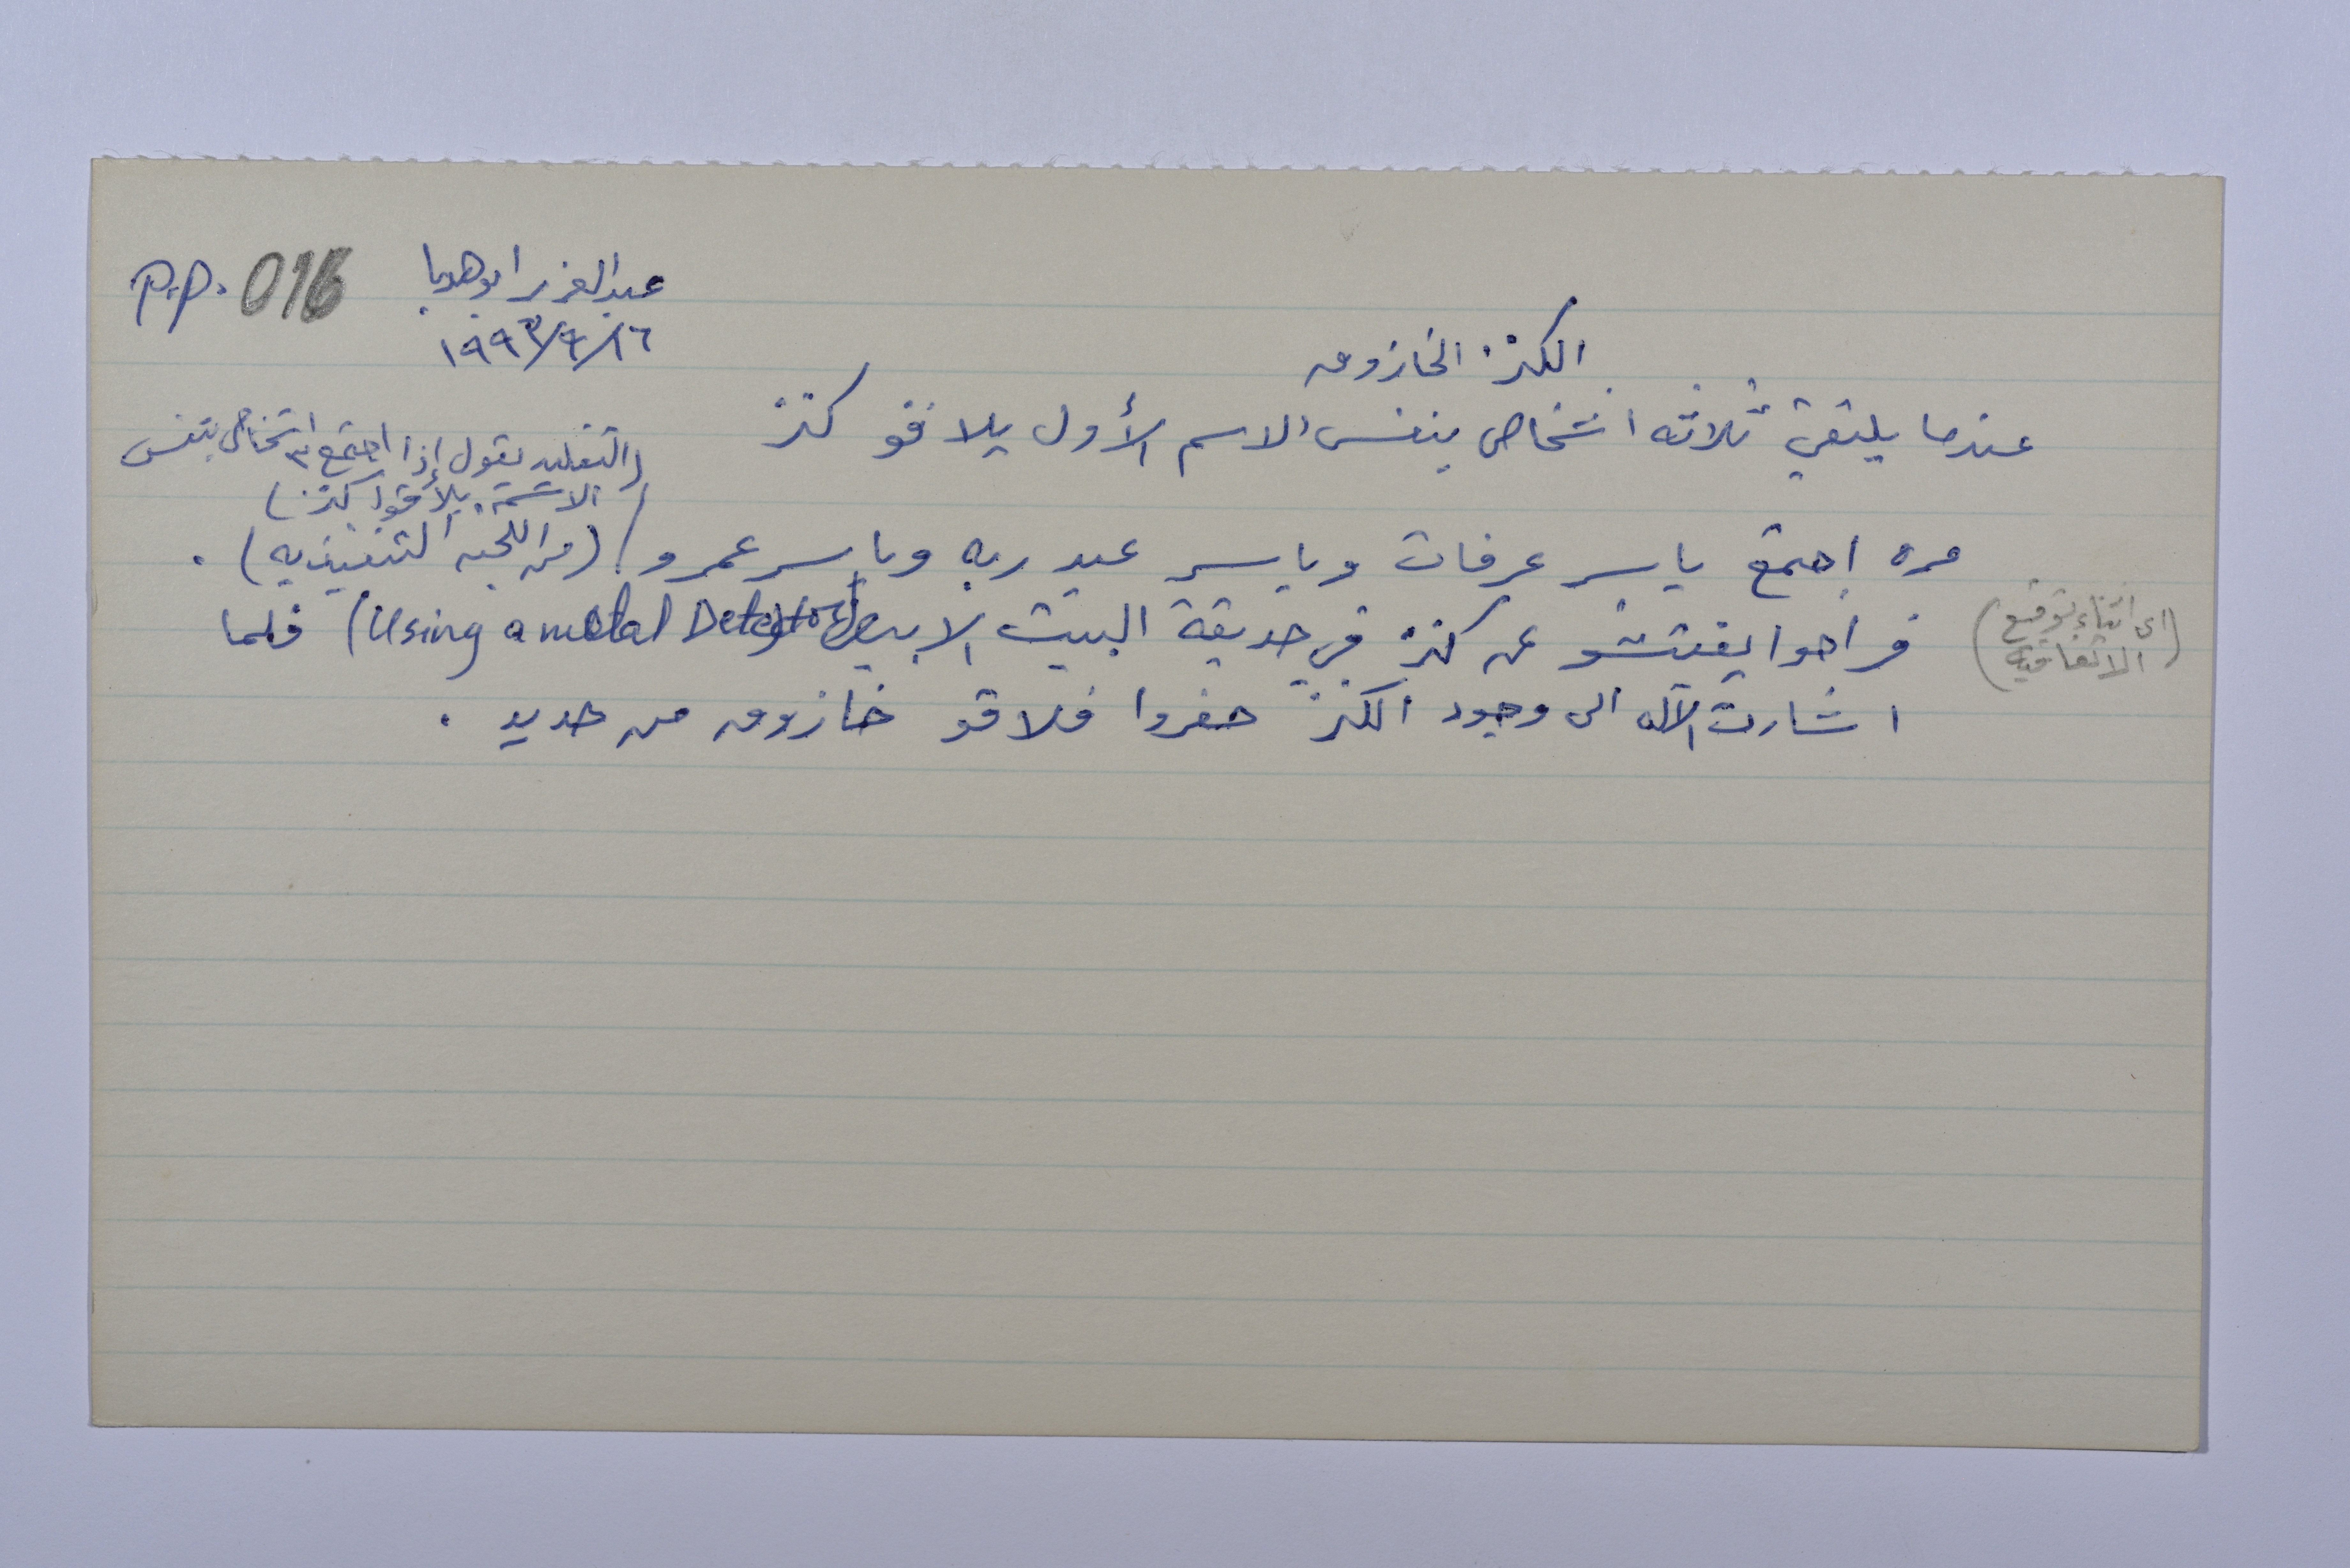 P.P. 016
عبدالعزيز ابوهدبا
١٩٩٣/٩/١٦
الكنز الخازوق
عندما يلتقي ثلاثه اشخاص بنفس الاسم الأول يلاقو كنز
(التقليد يقول إذا اجتمع ٣ اشخاص بنفس
الاسم يلاقوا كنز)
مره اجتمع ياسر عرفات وياسر عبد ربه وياسر عمرو / (من اللجنه التنفيذيه) .
(اي اثناء توقيع
الاتفاقيه)
فراحوا يفتشو عن كنز في حديقة البيت الابيض (Using a metal Detector) فلما
اشارت الآله الى وجود الكنز حفروا فلاقو خازوق من حديد .